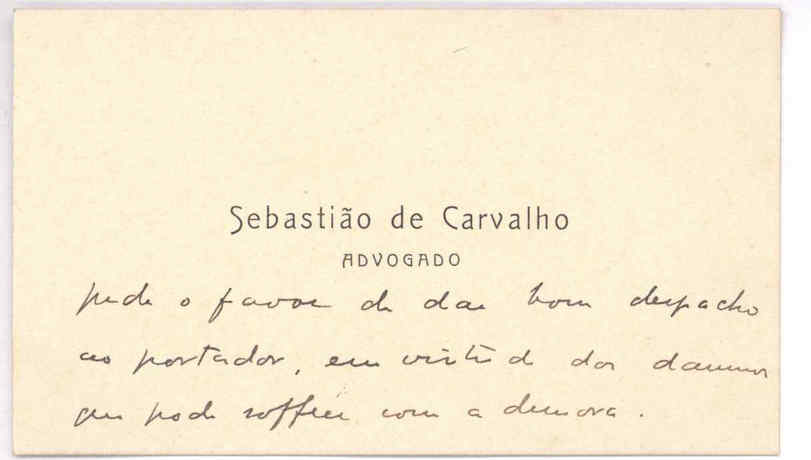 Sebastião de Carvalho
ADVOGADO
pede o favor de dar bom despacho
ao portador, em virtude dos damnos
que pode soffrer com a demora.